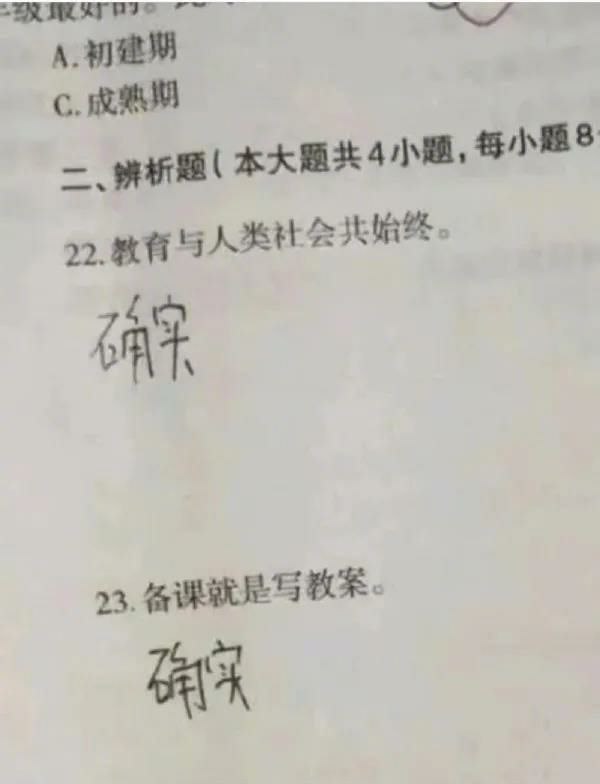 级最好的。
A.初建期
C.成熟期
二、辨析题(本大题共4小题,每小题8
22.教育与人类社会共始终。
确实
23.备课就是写教案。
确实